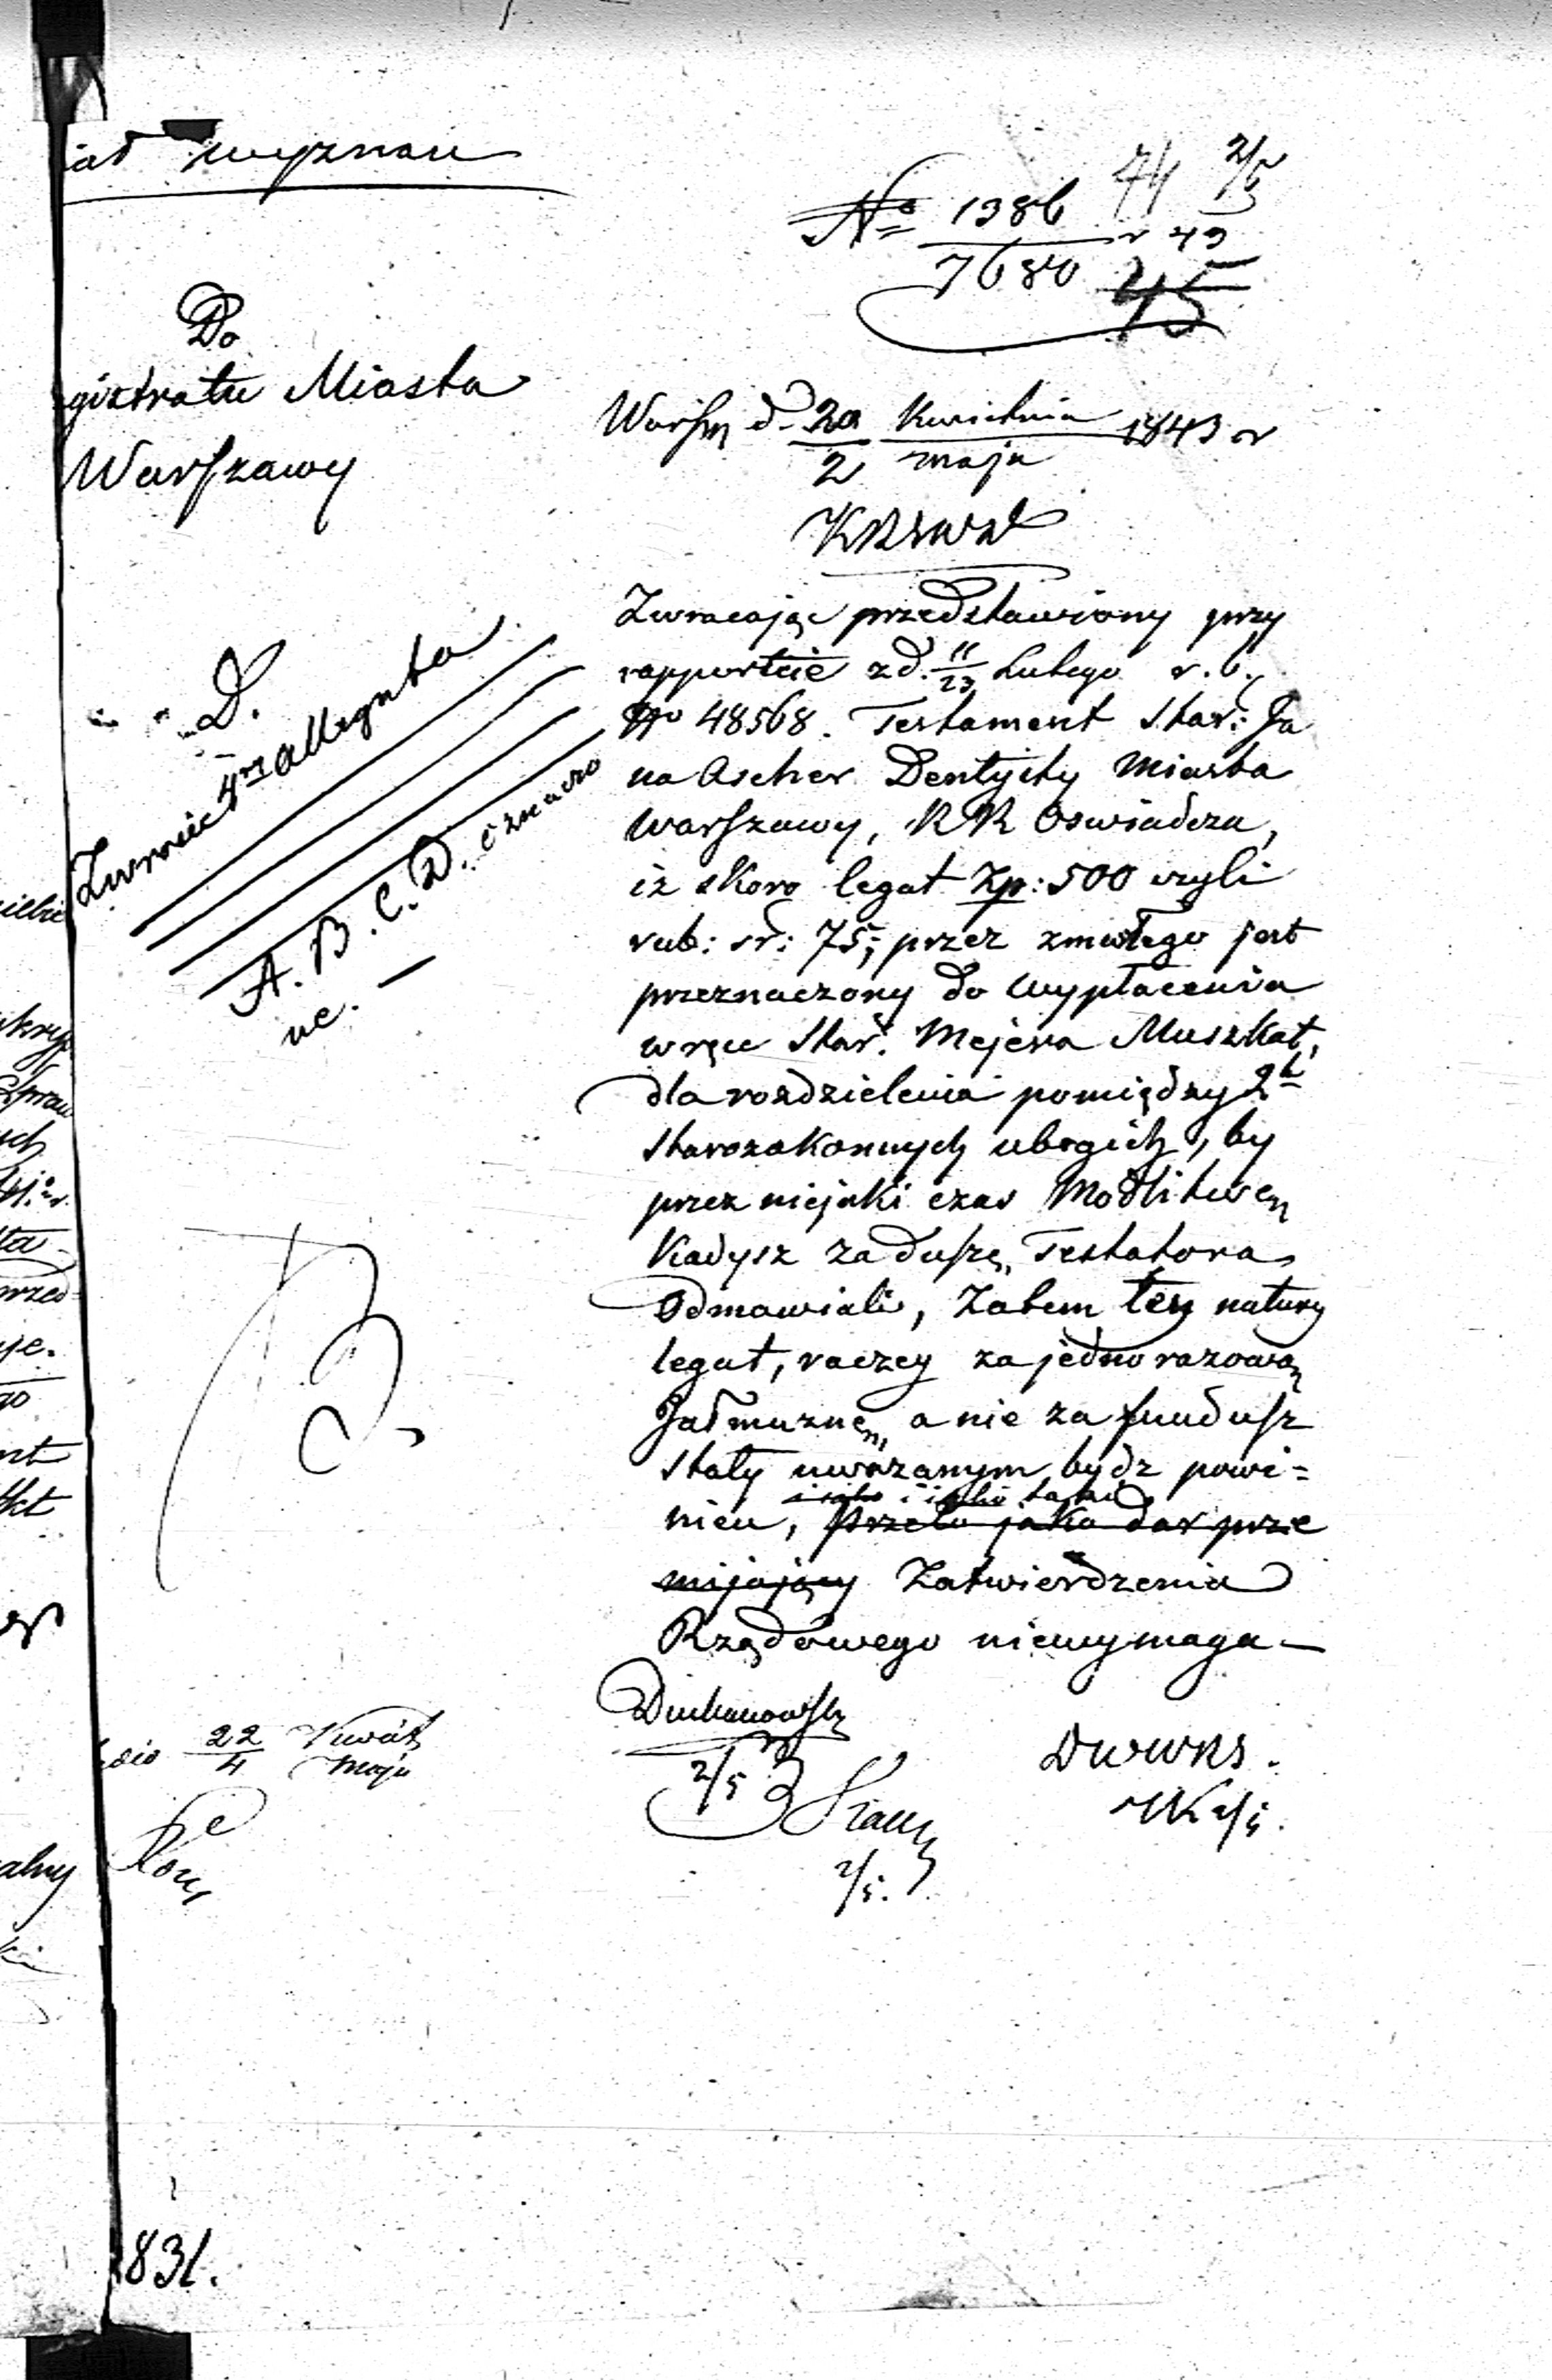 wyznań
Nº 1386 74 2/5
7680 r 49
45
Do
gistratu Miasta
Warszawy
Warszą d. 20 Kwietnia 1843 r
2 maja
KRSWD
Zwracając przedstawiony przy
rapporcie z d. 11/23 Lutego r. b.
No 48568. Testament Star: Ja
na Ascher Dentysty Miasta
Warszawy, KR Oswiadcza,
iż skoro legat Zp: 500 czyli
rub: sr: 75; przez zmarłego jest
przeznaczony do wypłacenia
w ręce Star. Mejera Muszkat,
dla rozdzielenia pomiędzy 2ch
Starozakonnych ubogich, by
przez niejaki czas Modlitwę
Kadysz za duszę Testatora
Odmawiali, Zatem tey natury
legat, raczey za jednorazową
Jałmużnę, a nie za fundusz
Stały uważanym bydz powi=
i jako taki
nien, przeto jako dar prze
mijający Zatwierdzenia
Rządowego niewymaga —
D.
Zwrócić 4ry allegata
A. B. C. D. oznaczo
ne. —
22 Kwiet
4 Maja
2/5
2/5.
831.